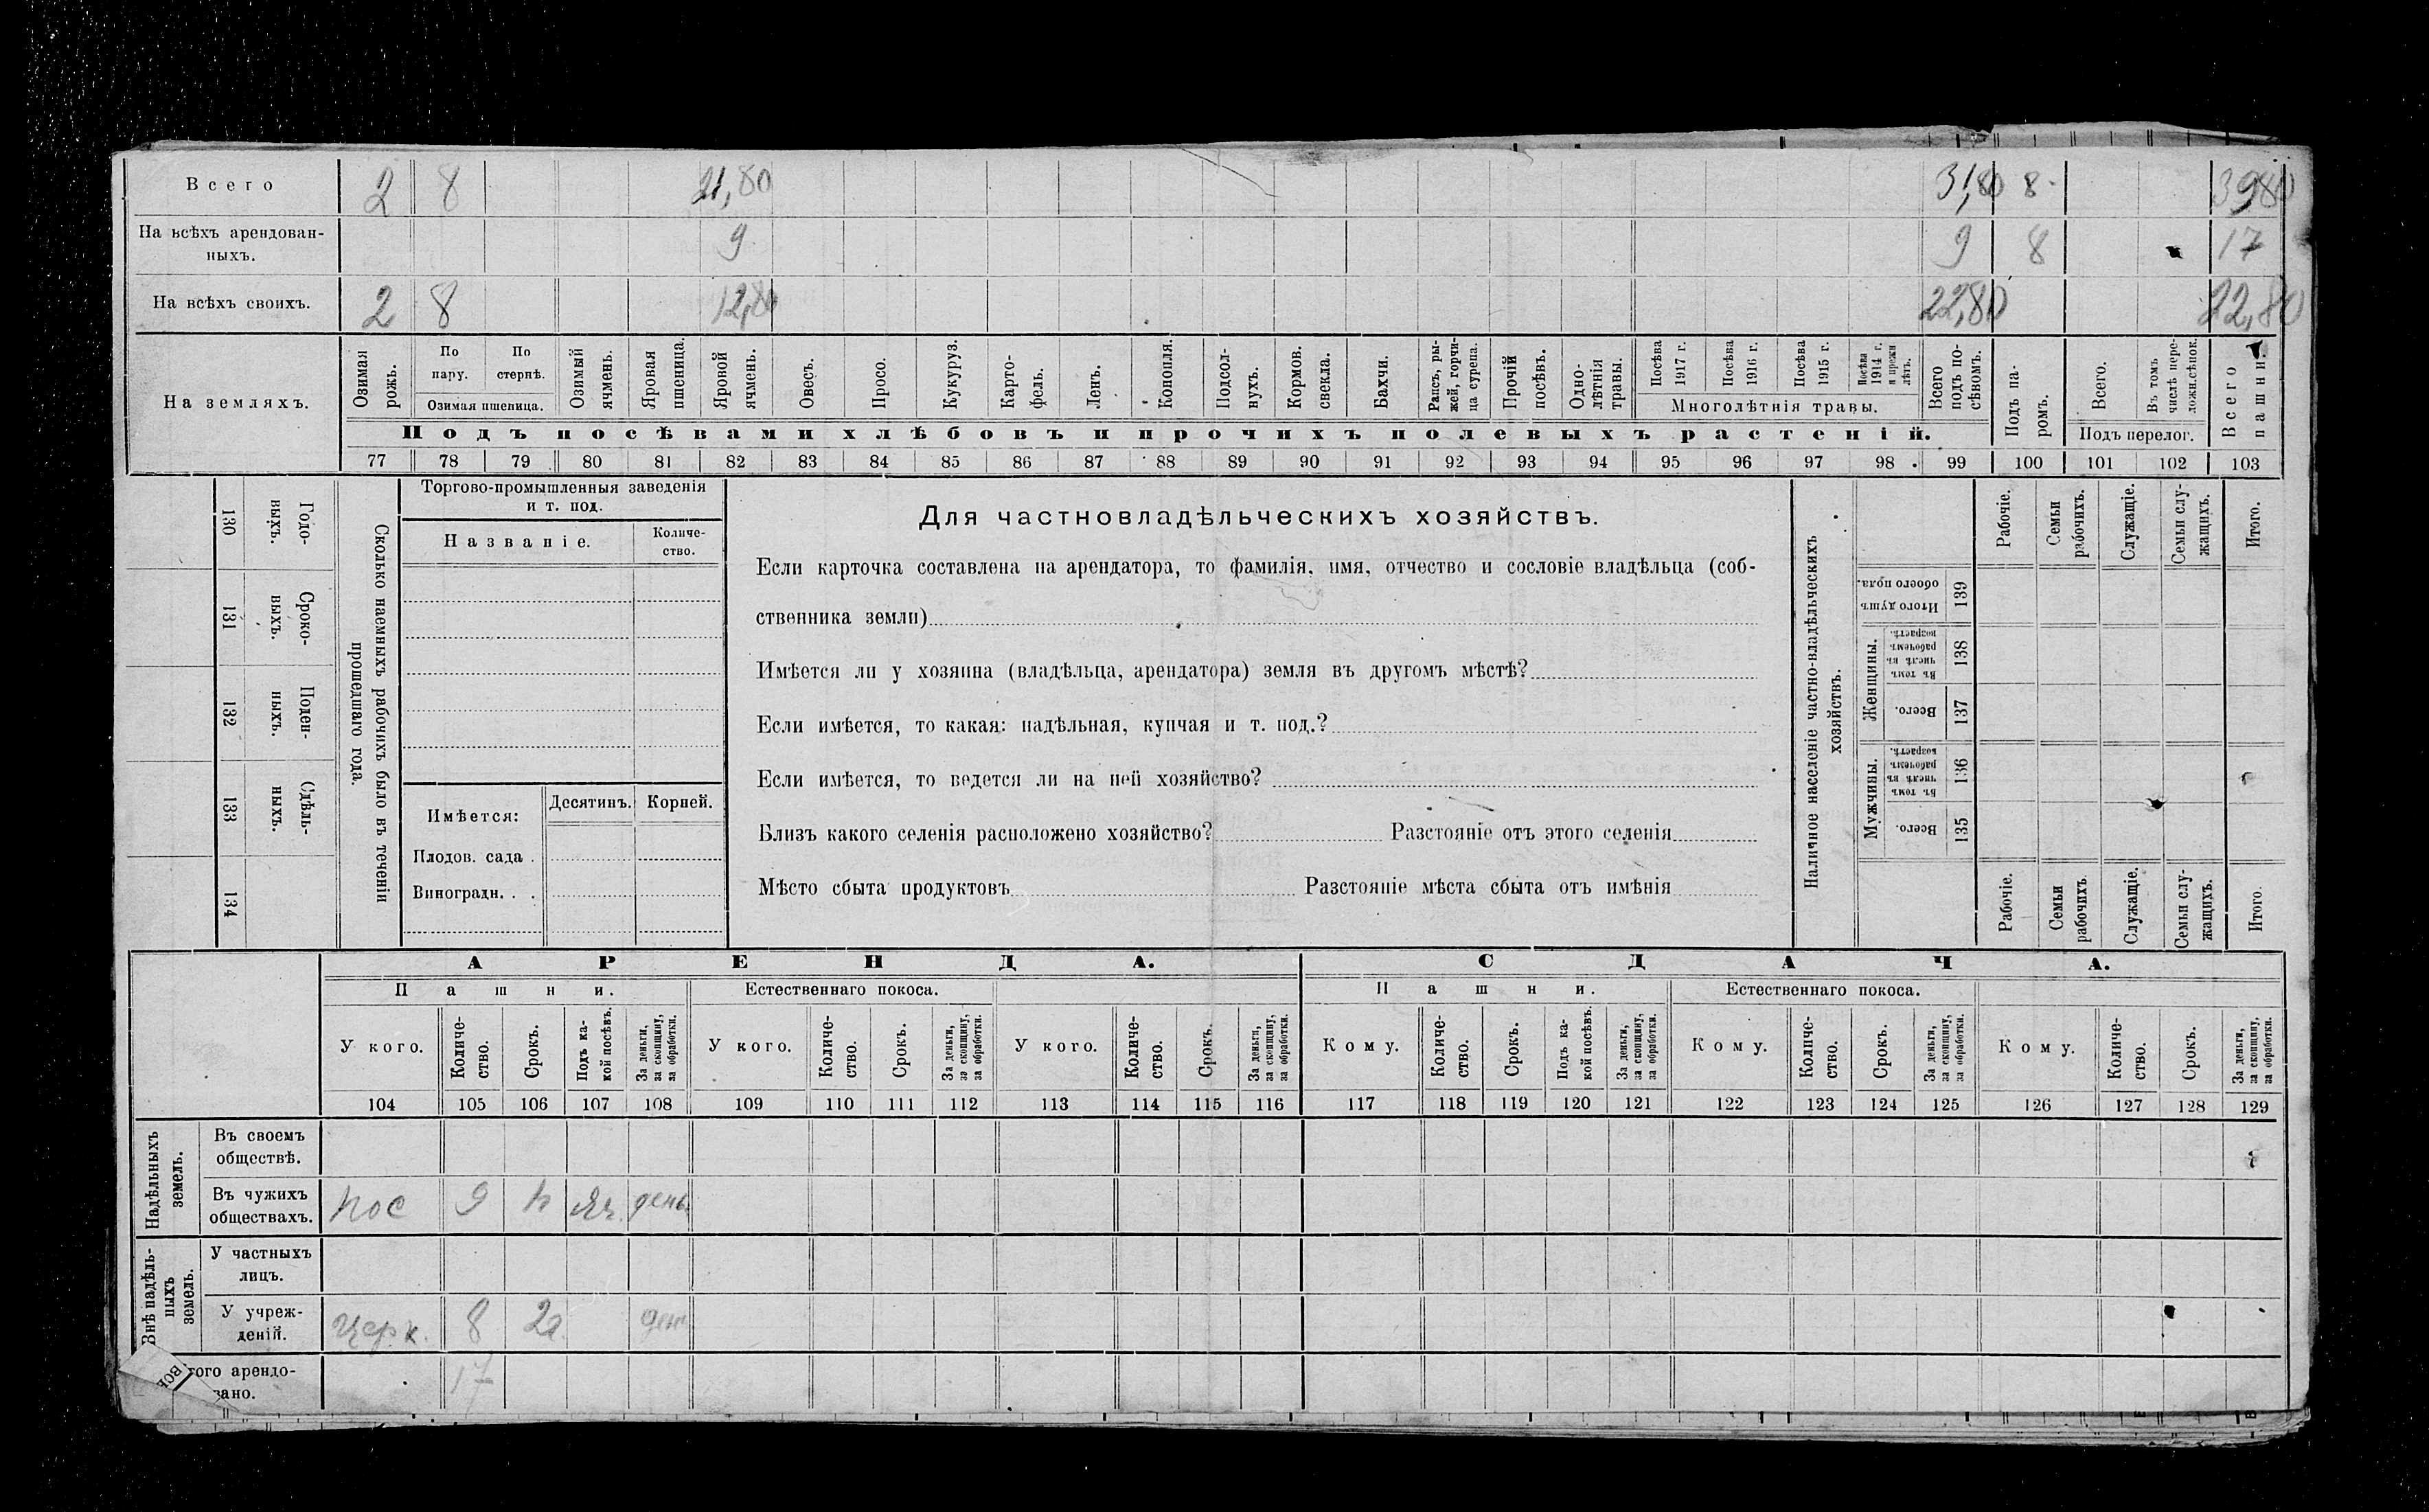 Всего 2 8 21,80 31,80 8 39,80
На всѣхъ арендован-
ныхъ. 9 9 8 17
На всѣхъ своихъ. 2 8 12,80 22,80 22,80
На земляхъ.
Озимая рожь.
По пару.
По стернѣ.
Озимая пшеница.
Озимый ячмень.
Яровая пшеница.
Яровой ячмень.
Овесъ.
Просо.
Кукуруз.
Карто-
фель.
Ленъ.
Конопля.
Подсол-
нухъ.
Кормов. свекла.
Бахчи.
Рапсъ, ры-
жей, горчи-
ца сурепа.
Прочій посѣвъ.
Одно-
лѣтнія травы.
Посѣва 1917 г.
Посѣва 1916 г.
Посѣва 1915 г.
Посѣва 1914 г. и прежн лѣтъ.
Многолѣтнія травы.
Всего подъ по-
сѣвомъ.
Подъ па-
ромъ.
Всего.
Въ томъ числѣ пере-
ложн.сѣнок.
Подъ перелог.
Всего пашни.
Подъ посѣвами хлѣбовъ и прочихъ полевыхъ растеній.
77 78 79 80 81 82 83 84 85 86 87 88 89 90 91 92 93 94 95 96 97 98 99 100 101 102 103
Годо-
выхъ.
130
Сроко-
выхъ.
131
Поден-
ныхъ.
132
Сдѣль-
ныхъ.
133
134
Сколько наемныхъ рабочихъ было въ теченіи
прошедшаго года.
Торгово-промышленныя заведенія
и т. под.
Названіе.
Количе-
ство.
Имѣется:
Десятинъ.
Корней.
Плодов. сада .
Виноградн. . .
Для частновладѣльческихъ хозяйствъ.
Если карточка составлена на арендатора, то фамилія, имя, отчество и сословіе владѣльца (соб-
ственника земли)
Имѣется ли у хозяина (владѣльца, арендатора) земля въ другомъ мѣстѣ?
Если имѣется, то какая: надѣльная, купчая и т. под.?
Если имѣется, то ведется ли на ней хозяйство?
Близъ какого селенія расположено хозяйство? Разстояніе отъ этого селенія
Мѣсто сбыта продуктовъ Разстояніе мѣста сбыта отъ имѣнія
Наличное населеніе частно-владѣльческихъ
хозяйствъ.
Рабочіе.
Семьи рабочихъ.
Служащіе.
Семьи слу-
жащихъ.
Итого.
Итого душъ обоего пола.
139
Женщины.
Въ томъ числѣ въ рабочемъ возрастѣ.
138
Всего.
137
Мужчины.
Въ томъ числѣ въ рабочемъ возрастѣ.
136
Всего.
135
Рабочіе.
Семьи рабочихъ.
Служащіе.
Семьи слу-
жащихъ.
Итого.
АРЕНДА.
СДАЧА.
Пашни.
Естественнаго покоса.
Пашни.
Естественнаго покоса.
У кого.
Количе-
ство.
Срокъ.
Подъ ка-
кой посѣвъ.
За деньги, за скопщину, за обработки.
У кого.
Количе-
ство.
Срокъ.
За деньги, за скопщину, за обработки.
У кого.
Количе-
ство.
Срокъ.
За деньги, за скопщину, за обработки.
Кому.
Количе-
ство.
Срокъ.
Подъ ка-
кой посѣвъ.
За деньги, за скопщину, за обработки.
Кому.
Количе-
ство.
Срокъ.
За деньги, за скопщину, за обработки.
Кому.
Количе-
ство.
Срокъ.
За деньги, за скопщину, за обработки.
104 105 106 107 108 109 110 111 112 113 114 115 116 117 118 119 120 121 122 123 124 125 126 127 128 129
Надѣльныхъ
земель.
Въ своемъ
обществѣ.
Въ чужихъ
обществахъ. пос 9 п яч. день
Внѣ надѣль-
ныхъ
земель.
У частныхъ
лицъ.
У учреж-
деній. церк. 8 2г ден
того арендо-
вано. 17